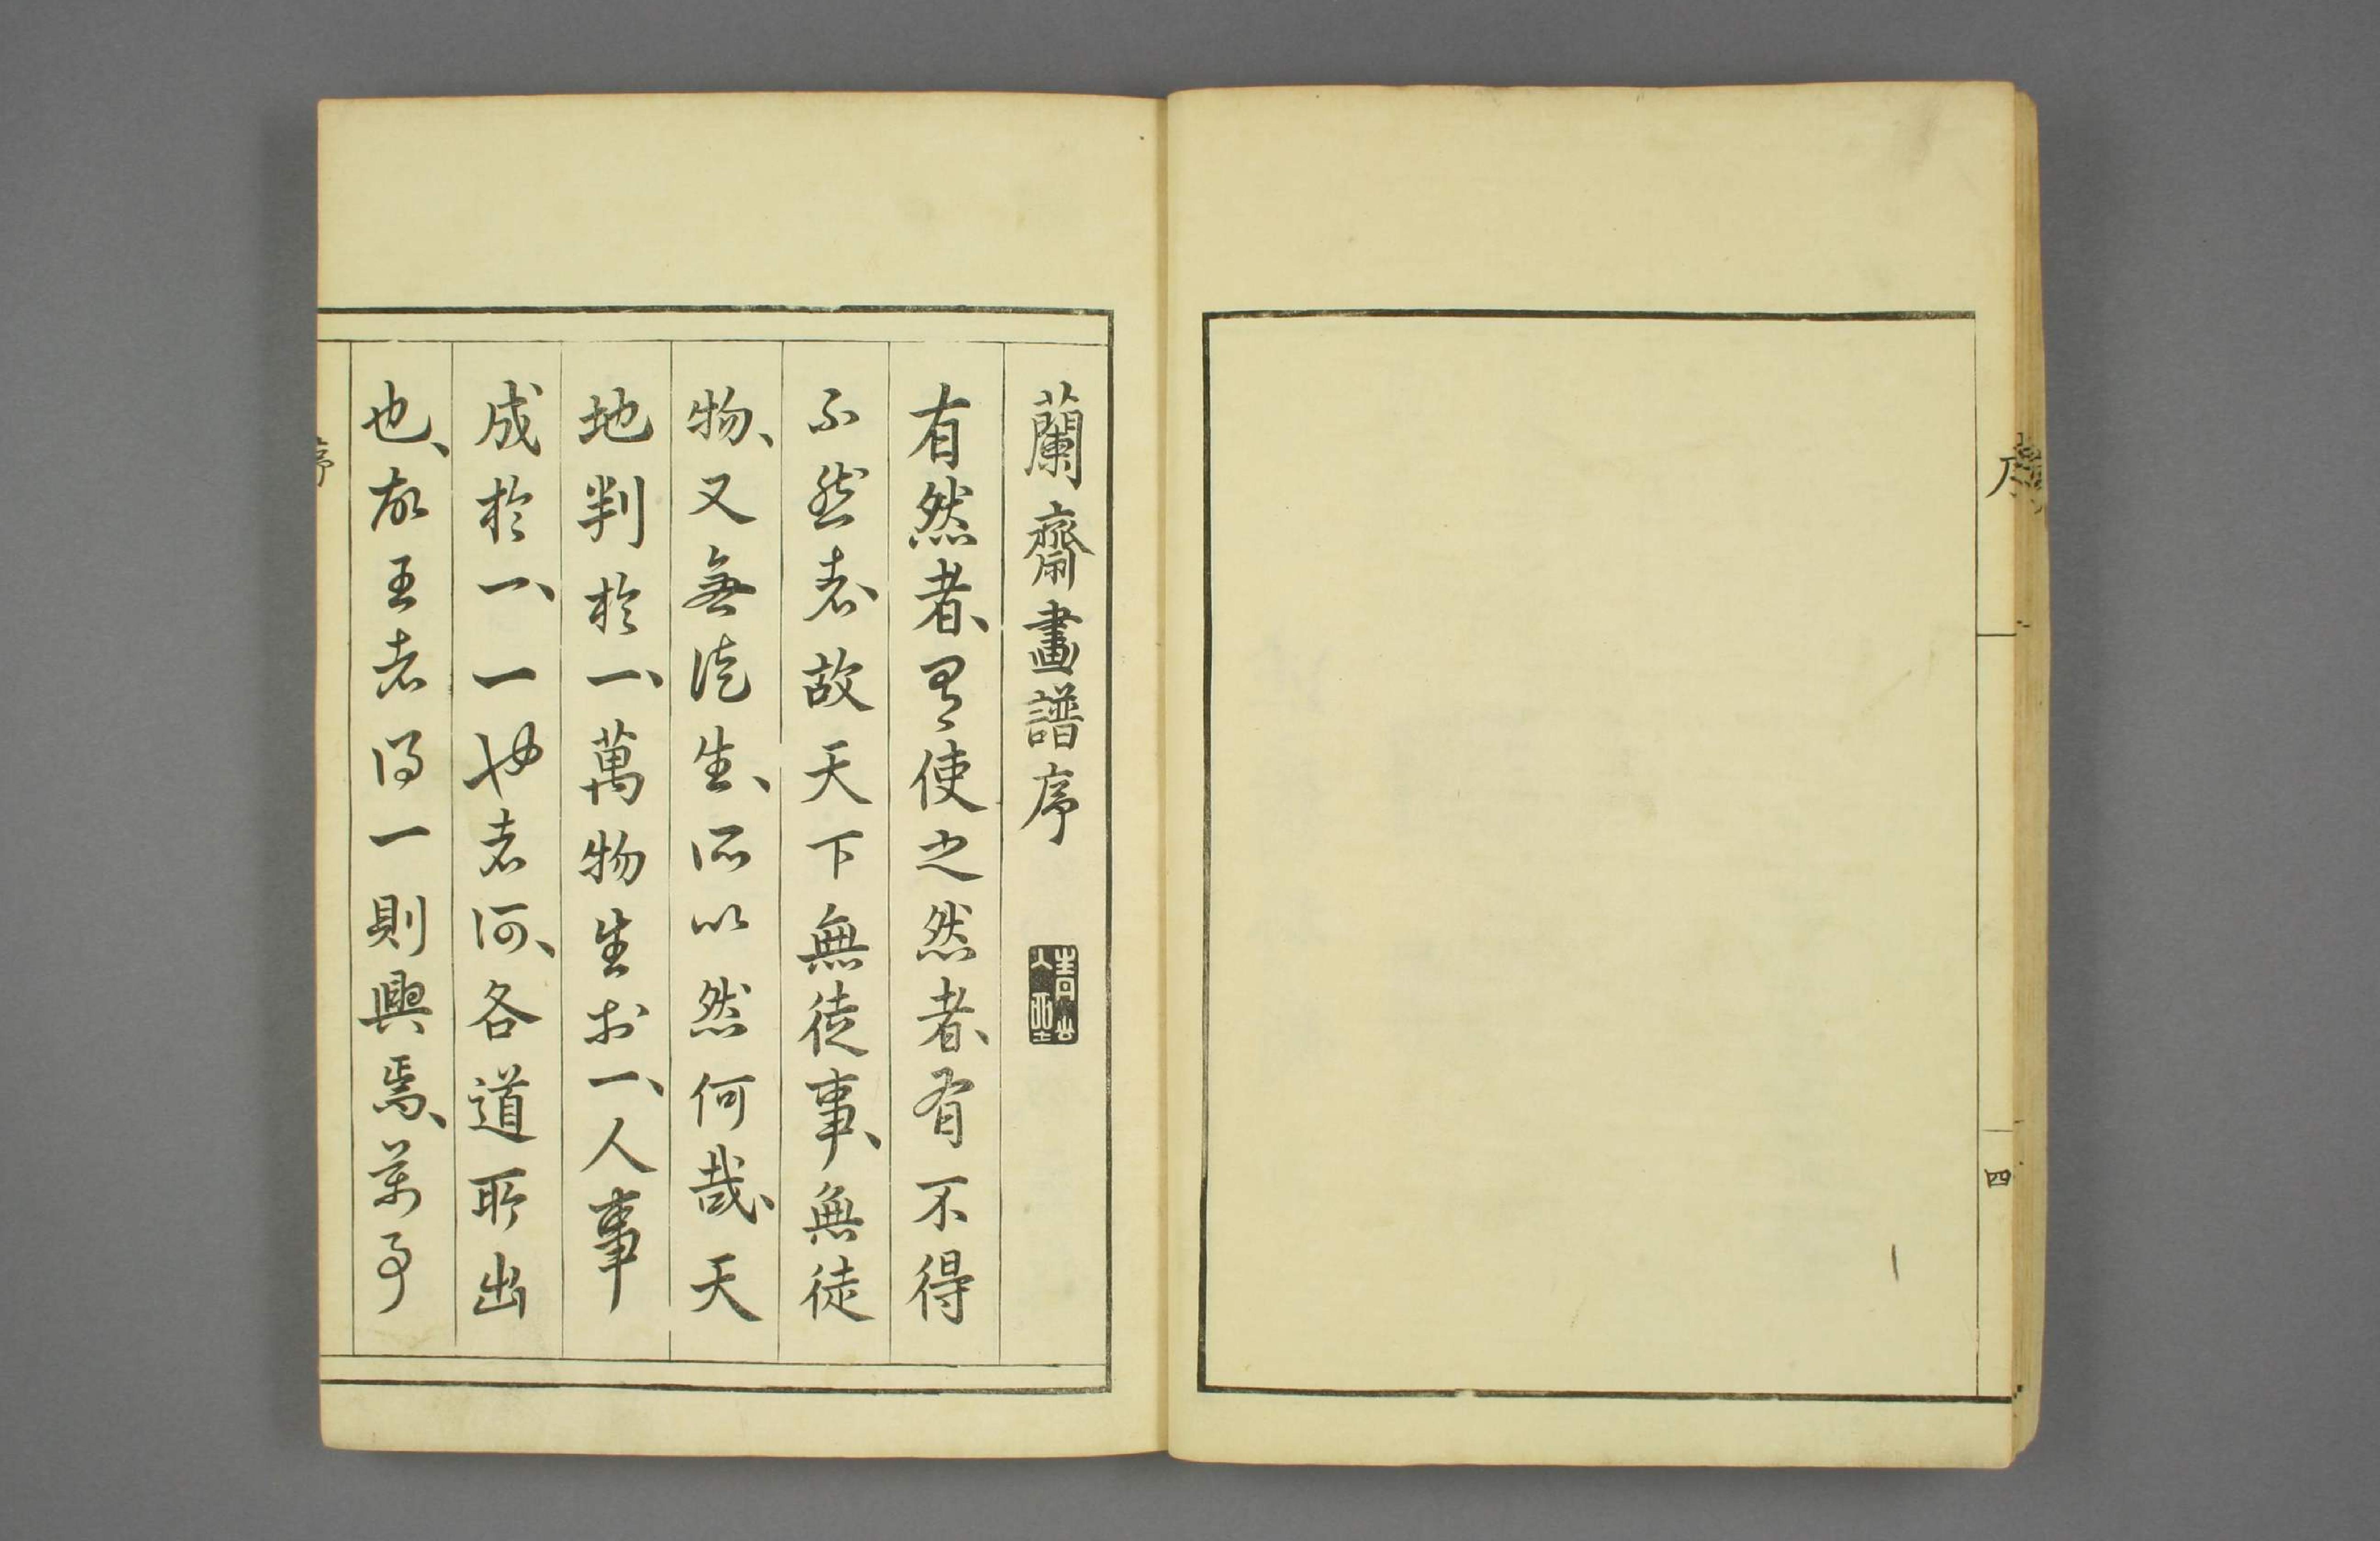 序
四
蘭齋畫譜序
有然者、有使之然者、有不得
不然者、故天下無徒事、無徒
物、又無徒生、所以然何哉、天
地判於一、萬物生於一、人事
成於一、一也者何、各道所出
也、故王者得一則興焉、萬事
序